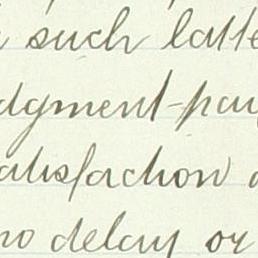 such latte
dgment-pay
atisfaction a
no delay or